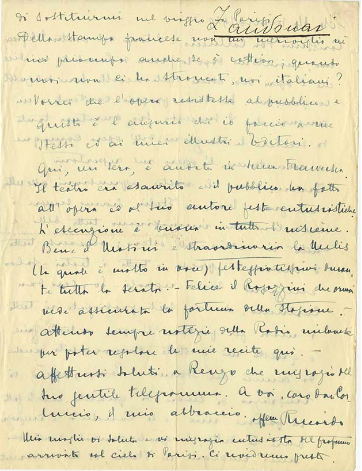 di sostituirmi nel viaggio a Parigi.
Zandonai
Della stampa francese non mi
mi preoccupo anche se è cattiva, quando
mai non ci ha stroncati, noi italiani?
Vorrei che l'opera resistesse al pubblico e
questo è l'augurio ch'io faccio a me
stesso ed ai miei illustri
Qui, ieri sera, è andata in scena Francesca.
Il teatro era esaurito e il pubblico ha fatto
all'opera ed al suo autore feste entusiastiche.
L'esecuzione è buona in tutto l'insieme.
Bene il Masini e straordinaria la Melis
(la quale è molto in voce) festeggiatissimi duran-
te tutta la serata. - Felice il che ormai
vede assicurata la fortuna della stagione. -
Attendo sempre notizie della Radio milanese
per poter regolare le mie recite qui. -
Affettuosi saluti a Renzo che ringrazio del
suo gentile telegramma. A voi, caro don Car-
luccio, il mio abbraccio. affmo Riccardo
Mia moglie vi saluta e vi ringrazia entusiasta del profumo
arrivato dal cielo di Parigi. Ci rivedremo presto.